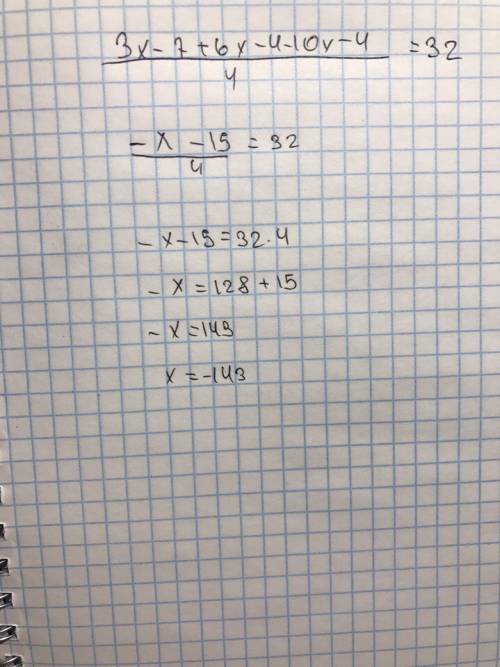 3x-7+6x-4-10x-4 =32
4
-x-15 =32
4
-x-15=32·4
-x=128+15
-x=143
x=-143